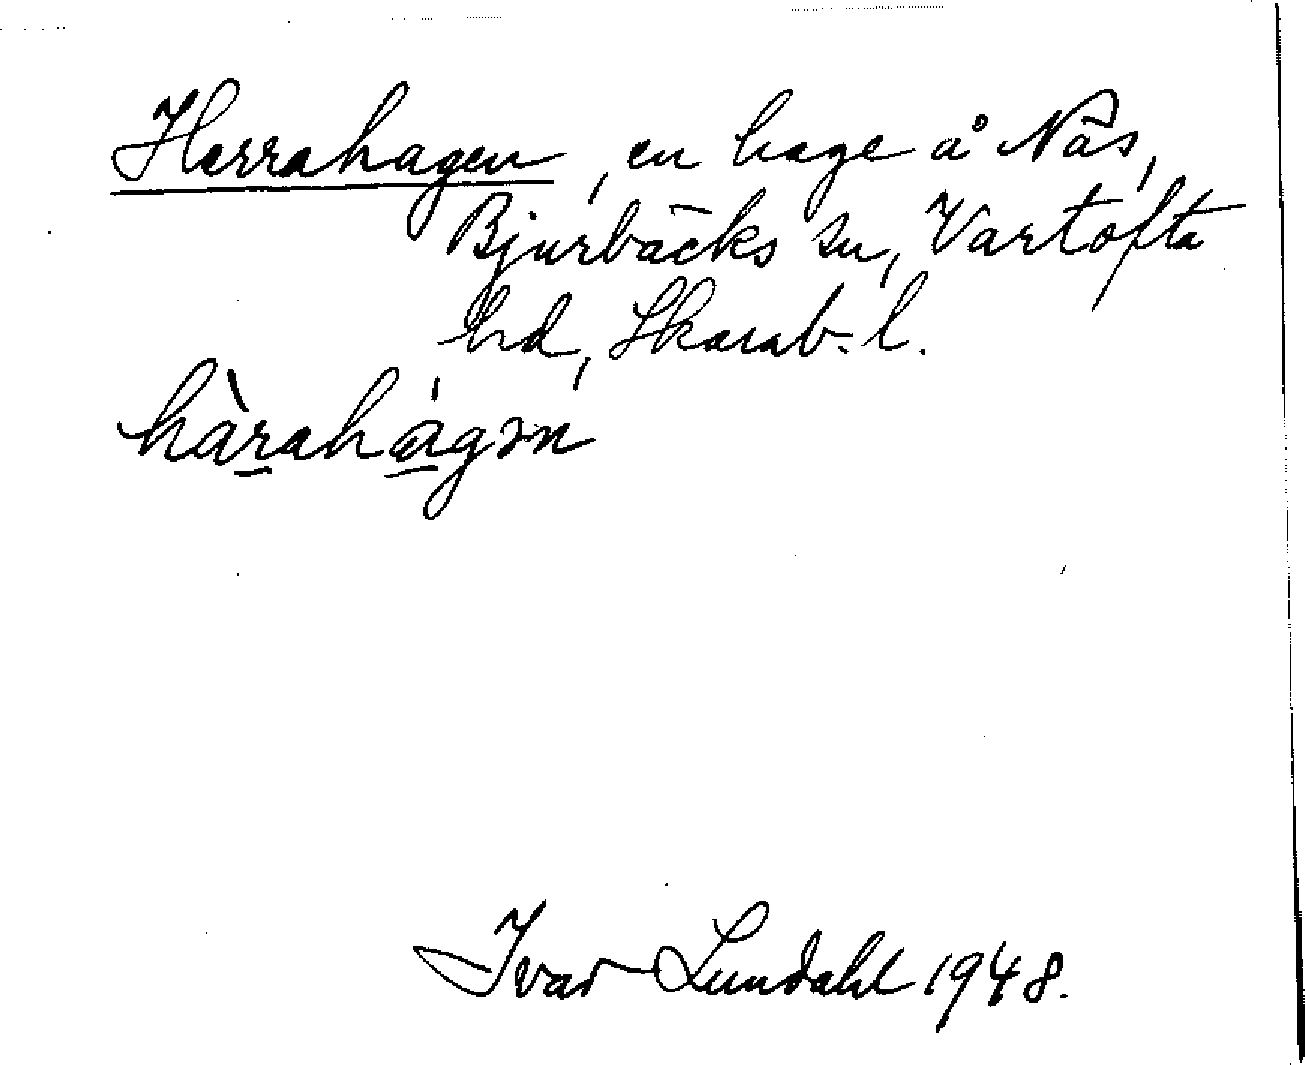 Herrahagen, en hage å Näs,
Bjurbäcks sn, Vartofta
hd, Skarab. l.
hàrahágən
Ivar Lundahl 1948.